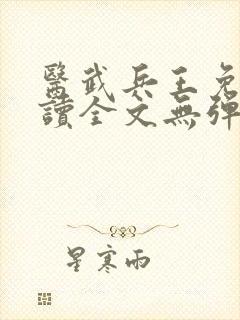 醫武兵王免
讀全文無彈
星寒雨